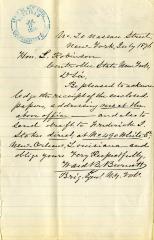 No. 20 Nassau Street
New York, July 1876
Hon. L. Robinson
Controller State New York,
Dr Sir,
Be pleased to acknow
ledge the receipt of the enclosed
papers, addressing me at the
above office and also to
send draft to Frederick S.
direct at No White St
New Orleans, Louisiana and
oblige yours Very Respectfully,
Ward B. Burnett
Brig. Genl N.Y. Vols.